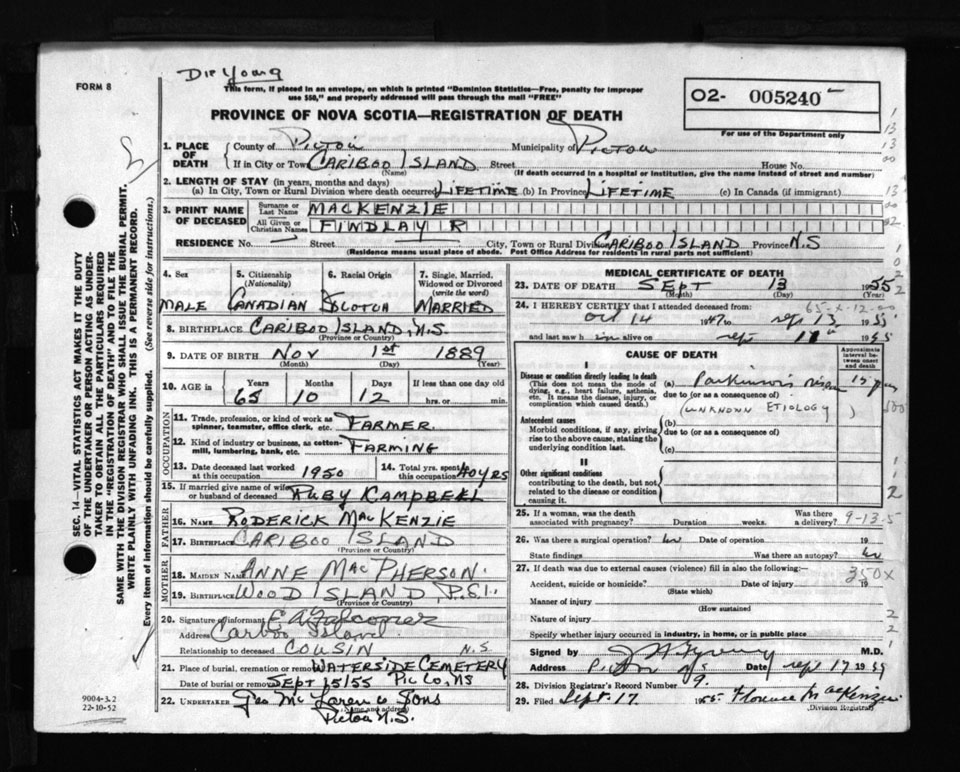 Dr Young
FORM 8
This form, if placed in an envelope, on which is printed "Dominion Statistics—Free, penalty for improper
use $50," and properly addressed will pass through the mail "FREE"
O2- 005240
For use of the Department only
PROVINCE OF NOVA SCOTIA—REGISTRATION OF DEATH
1. PLACE OF DEATH County of Pictou Municipality of Pictou
If in City or Town CARIBOO ISLAND Street House No.
(Name) (If death occurred in a hospital or institution, give the name instead of street and number)
2. LENGTH OF STAY (in years, months and days)
(a) In City, Town or Rural Division where death occurred LIFETIME (b) In Province LIFETIME (c) In Canada (if immigrant)
3. PRINT NAME OF DECEASED Surname or Last Name MACKENZIE
All Given or Christian Names FINDLAY R
RESIDENCE No. Street City, Town or Rural Division CARIBOO ISLAND Province N.S
(Residence means usual place of abode. Post Office Address for residents in rural parts not sufficient)
4. Sex 5. Citizenship (Nationality) 6. Racial Origin 7. Single, Married, Widowed or Divorced (write the word)
MALE CANADIAN SCOTCH MARRIED
8. BIRTHPLACE CARIBOO ISLAND, N.S.
(Province or Country)
9. DATE OF BIRTH NOV 1st 1889
(Month) (Day) (Year)
10. AGE in Years Months Days If less than one day old
65 10 12 hrs. or min.
OCCUPATION
11. Trade, profession, or kind of work as spinner, teamster, office clerk, etc. FARMER.
12. Kind of industry or business, as cotton-mill, lumbering, bank, etc. FARMING
13. Date deceased last worked at this occupation 1950 14. Total yrs. spent 40 YRS
15. If married give name of wife or husband of deceased RUBY CAMPBELL
FATHER
16. NAME RODERICK MACKENZIE
17. BIRTHPLACE CARIBOO ISLAND
(Province or Country)
MOTHER
18. MAIDEN NAME ANNE MACPHERSON.
19. BIRTHPLACE WOOD ISLAND, P.E.I.
(Province or Country)
20. Signature of informant E A Falconer
Address Cariboo Island
Relationship to deceased COUSIN N.S.
21. Place of burial, cremation or removal WATERSIDE CEMETERY
Date of burial or removal SEPT 15/55 PIC CO, NS
22. UNDERTAKER Geo McLaren & Sons
(Name and address)
Pictou N.S.
MEDICAL CERTIFICATE OF DEATH
23. DATE OF DEATH SEPT 13 1955
(Month) (Day) (Year)
24. I HEREBY CERTIFY that I attended deceased from:
65-x-12-00
Oct 14 1947 to Sept 13 1955
and last saw him alive on Sept 1955
CAUSE OF DEATH
Approximate interval between onset and death
I
Disease or condition directly leading to death
(This does not mean the mode of dying, e.g., heart failure, asthenia, etc. It means the disease, injury, or complication which caused death.)
(a) Parkinson's 15 years
due to (or as a consequence of)
(UNKNOWN ETIOLOGY)
Antecedent causes
Morbid conditions, if any, giving rise to the above cause, stating the underlying condition last.
(b)
due to (or as a consequence of)
(c)
II
Other significant conditions
contributing to the death, but not related to the disease or condition causing it.
25. If a woman, was the death associated with pregnancy? Duration weeks. Was there a delivery? 9-13-5
26. Was there a surgical operation? no Date of operation 19
State findings Was there an autopsy? no
27. If death was due to external causes (violence) fill in also the following:— 350X
Accident, suicide or homicide? Date of injury 19
(State which)
Manner of injury
(How sustained)
Nature of injury
Specify whether injury occurred in industry, in home, or in public place
Signed by M.D.
Address Pictou NS Date Sept 17 1955
28. Division Registrar's Record Number 9.
29. Filed Sept. 17 1955 Florence MacKenzie
(Division Registrar)
SEC. 14—VITAL STATISTICS ACT MAKES IT THE DUTY
OF THE UNDERTAKER OR PERSON ACTING AS UNDER-
TAKER TO OBTAIN ALL THE PARTICULARS REQUIRED
IN THE "REGISTRATION OF DEATH" AND TO FILE THE
SAME WITH THE DIVISION REGISTRAR WHO SHALL ISSUE THE BURIAL PERMIT.
WRITE PLAINLY WITH UNFADING INK. THIS IS A PERMANENT RECORD.
Every item of information should be carefully supplied. (See reverse side for instructions.)
9004-3.2
22-10-52